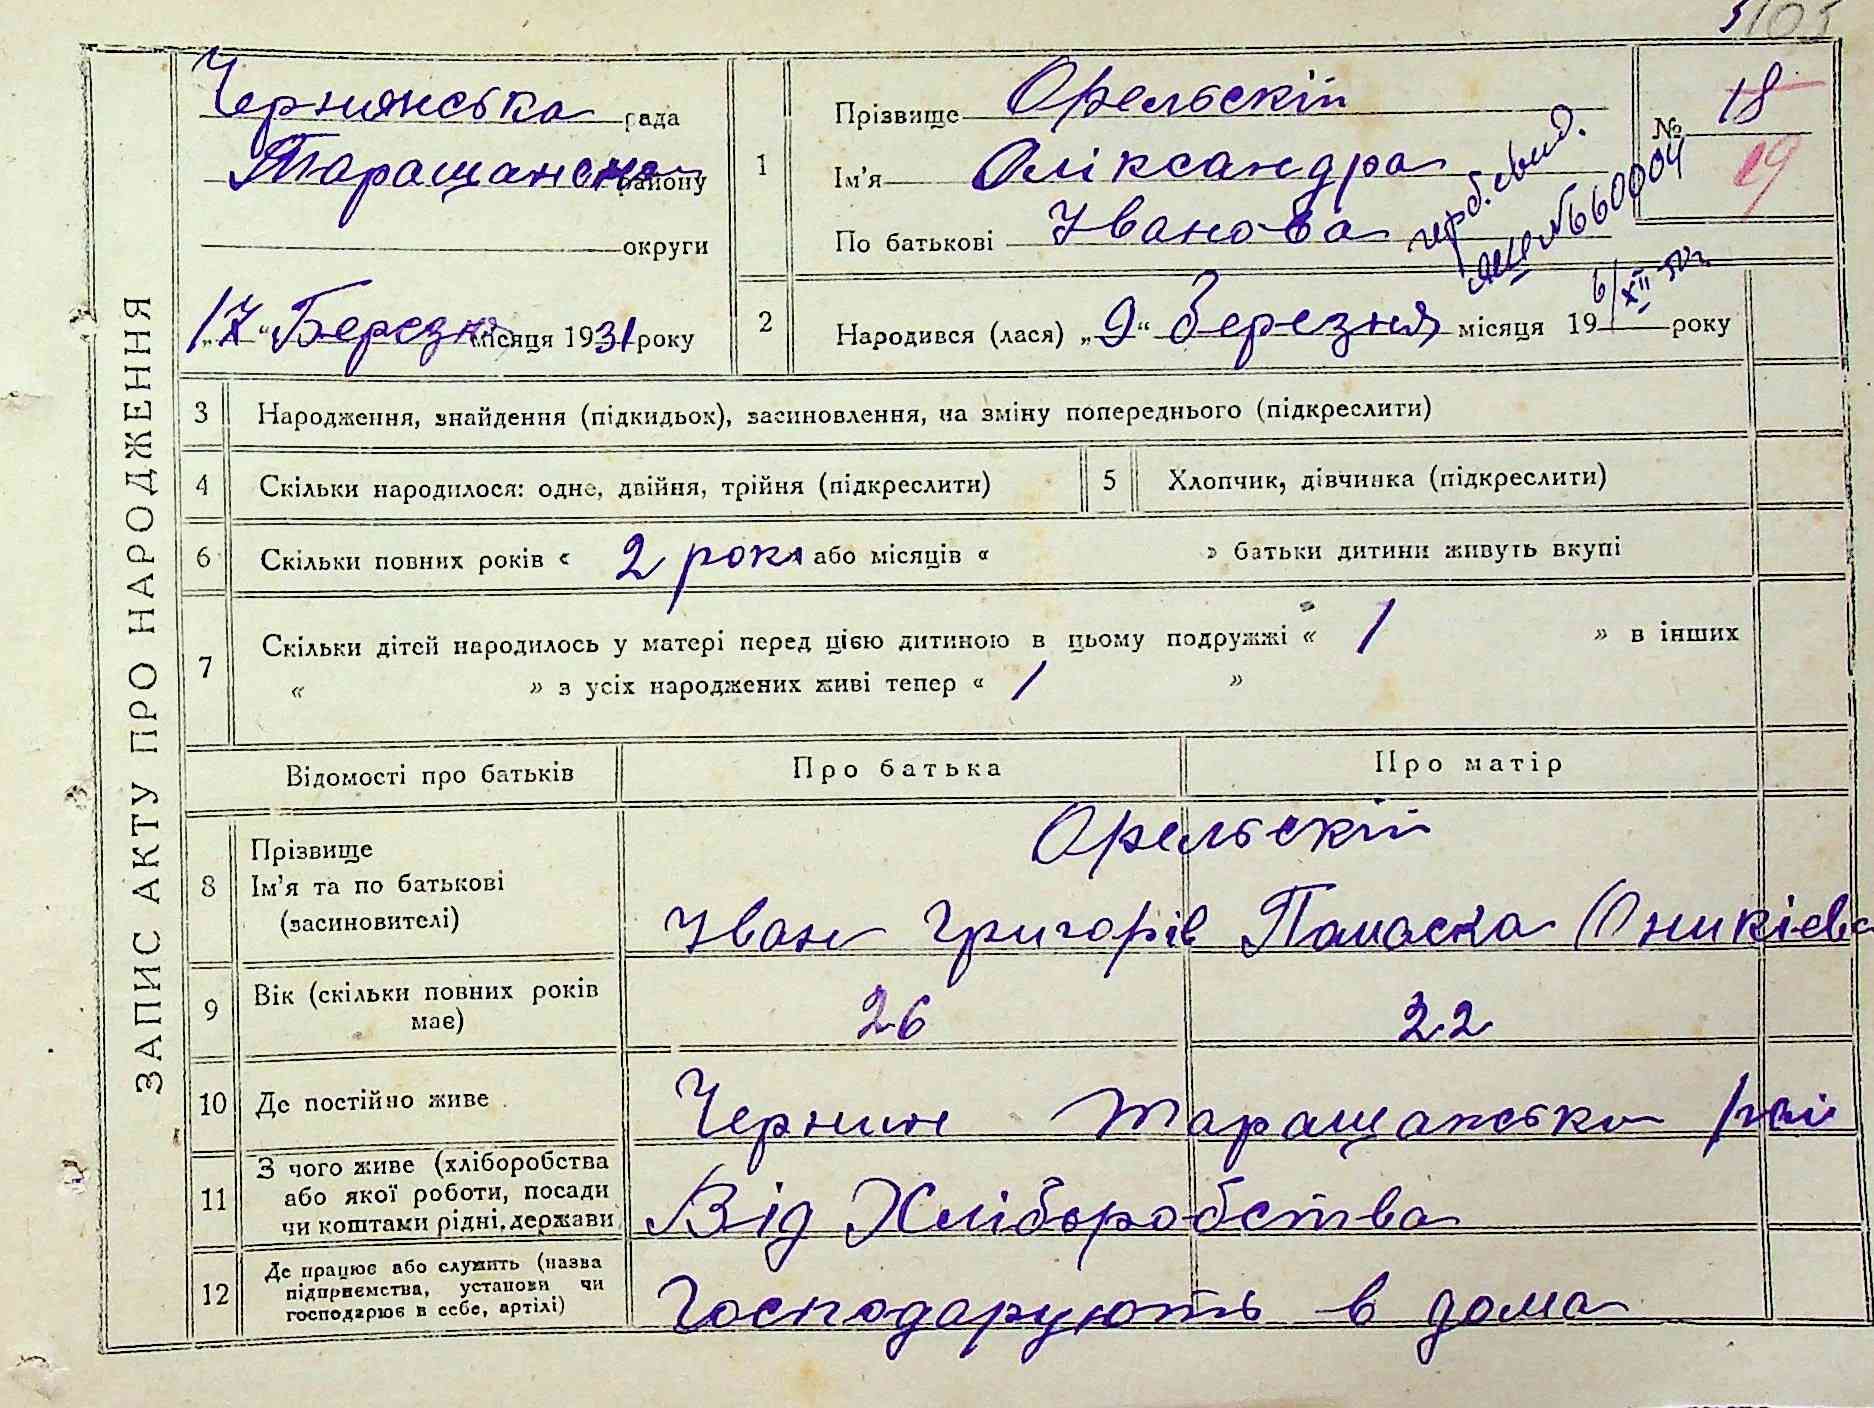 103
ЗАПИС АКТУ ПРО НАРОДЖЕННЯ
Чернянська рада
Таращанська району
округи
„17“ Березня місяця 1931 року
1
Прізвище Орельскій
Ім'я Оліксандра
По батькові Іванова
№ 18
19
2
Народився (лася) „9“ Березня місяця 19 року
660004
6/XII
3 Народження, знайдення (підкидьок), засиновлення, на зміну попереднього (підкреслити)
4 Скільки народилося: одне, двійня, трійня (підкреслити)
5 Хлопчик, дівчинка (підкреслити)
6 Скільки повних років « 2 рока або місяців « » батьки дитини живуть вкупі
7 Скільки дітей народилось у матері перед цією дитиною в цьому подружжі « 1 » в інших
« » з усіх народжених живі тепер « 1 »
Відомості про батьків Про батька Про матір
8 Прізвище
Ім'я та по батькові
(засиновителі)
Орельскій
Іван Григорів Оникієва
9 Вік (скільки повних років
має)
26 22
10 Де постійно живе Чернин Таращанська рай
11 З чого живе (хліборобства
або якої роботи, посади
чи коштами рідні, держави
Від Хліборобства
12 Де працює або служить (назва
підприємства, установи чи
господарює в себе, артілі)
Господарують в дома